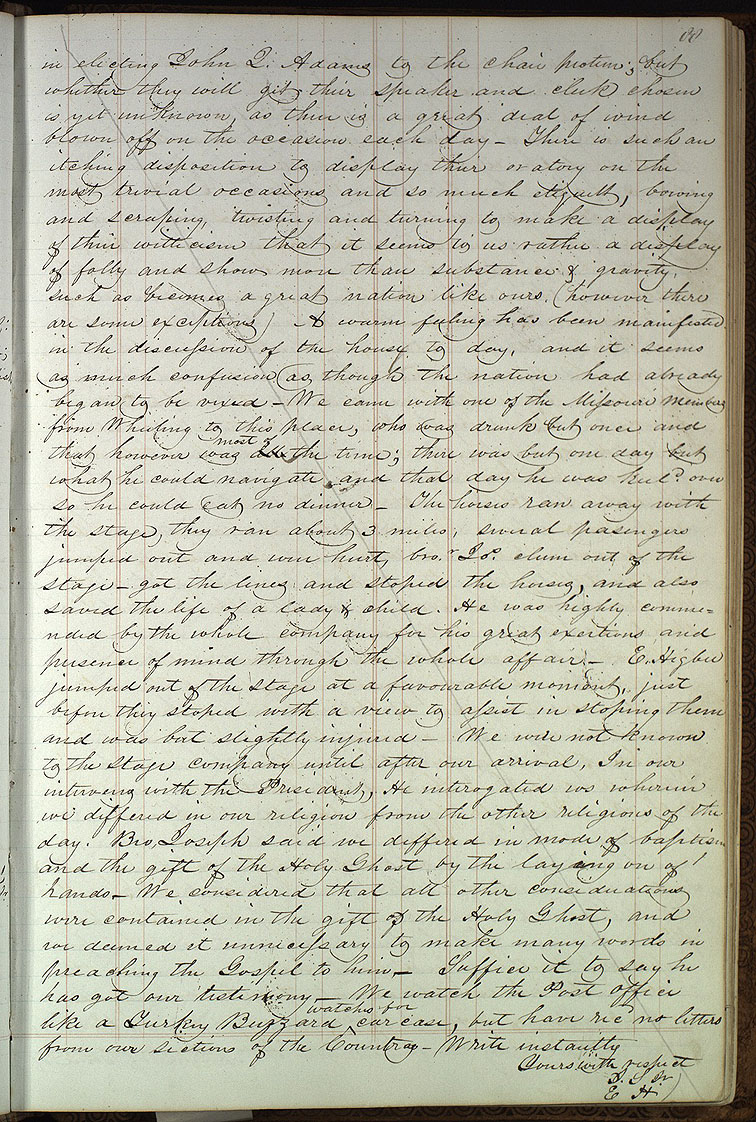 88
in electing John Q. Adams to the chair protem; but
whether they will git their speaker and clerk chosen
is yet unknown, as their is a great deal of wind
blown off on the occasion each day – There is such an
itching disposition to display their oratory on the
most trivial occasions and so much etiquett, bowing
and scraping, twisting and turning to make a display
of their witticism that it seems to us rather a display
of folly and show more than substance & gravity,
such as becomes a great nation like ours. (however there
are some exceptions) A warm feeling has been manifested
in the discussion of the house to day, and it seems
as much confusion as though the nation had already
began to be vexed – We came with one of the Missouri members
from Wheeling to this place, who was drunk but once and
that however was most of the time; there was but one day but
what he could navigate and that day he was keeld. over
so he could eat no dinner – The horses ran away with
the stage, they ran about 3 miles; several passengers
jumped out and were hurt, bror. Jos. clum out of the
stage – got the lines and stoped the horses, and also
saved the life of a lady & child. He was highly comme-
nded by the whole company for his great exertions and
presence of mind through the whole affair – E. Higbee
jumped out of the stage at a favourable moment, just
before they stoped with a view to assist in stoping them
and was but slightly injured – We were not known
to the stage company until after our arrival, In our
interview with the President, He interogated us wherein
we differed in our religion from the other religions of the
day. Bro, Joseph said we differed in mode of baptism
and the gift of the Holy Ghost by the laying on of
hands – We considered that all other considerations
were contained in the gift of the Holy Ghost, and
we deemed it unnecessary to make many words in
preaching the Gospel to him – Suffice it to say he
has got our testimony – We watch the Post office
like a Turkey Buzzard watches for carcase, but have recd no letters
from our sections of the Country – Write instantly
Yours with respect
J. S. Jr
E H.